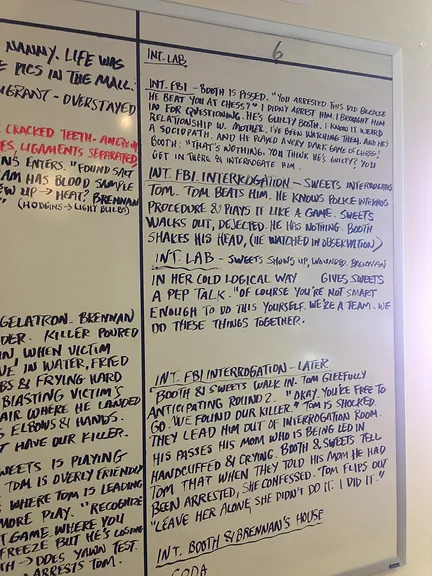 NANNY. LIFE WAS
PICS IN THE MALL.
- OVERSTAYED
CRACKED TEETH.
LIGAMENTS SEPARATED
ENTERS. "FOUND SALT
HAS BLOOD SAMPLE
UP → HEAT? BRENNAN
(HODGINS → LIGHT BULBS)
GELATRON. BRENNAN
KILLER POURED
IN, WHEN VICTIM
IN WATER, FRIED
& FRYING HARD
BLASTING VICTIM'S
WHERE HE LANDED
ELBOWS & HANDS.
HAVE OUR KILLER.
IS PLAYING
TOM IS OVERLY FRIENDLY
WHERE TOM IS LEADING
MORE PLAY. "RECOGNIZE
GAME WHERE YOU
FREEZE BUT HE'S LOSING
→ DOES YAWN TEST.
ARRESTS TOM.
6
INT. LAB
INT. FBI - BOOTH IS PISSED. "YOU ARRESTED THIS KID BECAUSE
HE BEAT YOU AT CHESS?" I DIDN'T ARREST HIM. I BROUGHT HIM
IN FOR QUESTIONING. HE'S GUILTY BOOTH. I KNOW IT. WEIRD
RELATIONSHIP W. MOTHER. I'VE BEEN WATCHING THEM. AND HE'S
A SOCIOPATH. AND HE PLAYED A VERY DARK GAME OF CHESS!
BOOTH: "THAT'S NOTHING. YOU THINK HE'S GUILTY? YOU
GET IN THERE & INTERROGATE HIM.
INT. FBI INTERROGATION - SWEETS INTERROGATING
TOM. TOM BEATS HIM. HE KNOWS POLICE INTERROG
PROCEDURE & PLAYS IT LIKE A GAME. SWEETS
WALKS OUT, DEJECTED. HE HAS NOTHING. BOOTH
SHAKES HIS HEAD, (HE WATCHED IN OBSERVATION)
INT. LAB - SWEETS SHOWS UP, WOUNDED. BRENNAN
IN HER COLD LOGICAL WAY GIVES SWEETS
A PEP TALK. "OF COURSE YOU'RE NOT SMART
ENOUGH TO DO THIS YOURSELF. WE'RE A TEAM. WE
DO THESE THINGS TOGETHER.
INT. FBI INTERROGATION - LATER
BOOTH & SWEETS WALK IN. TOM GLEEFULLY
ANTICIPATING ROUND 2. "OKAY. YOU'RE FREE TO
GO. WE FOUND OUR KILLER." TOM IS SHOCKED.
THEY LEAD HIM OUT OF INTERROGATION ROOM.
HIS PASSES HIS MOM WHO IS BEING LED IN
HANDCUFFED & CRYING. BOOTH & SWEETS TELL
TOM THAT WHEN THEY TOLD HIS MOM HE HAD
BEEN ARRESTED, SHE CONFESSED. TOM FLIPS OUT
"LEAVE HER ALONE, SHE DIDN'T DO IT. I DID IT."
INT. BOOTH & BRENNAN'S HOUSE
CODA